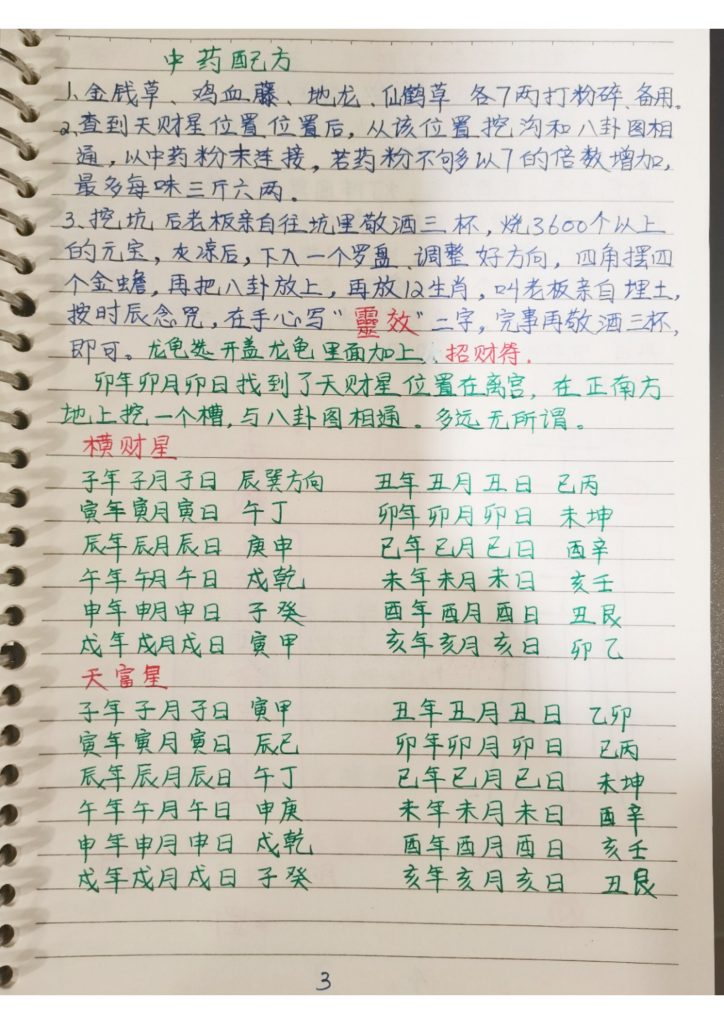 中药配方
1、金钱草、鸡血藤、地龙、仙鹤草 各7两打粉碎、备用。
2、查到天财星位置位置后，从该位置挖沟和八卦图相
通，以中药粉末连接，若药粉不够多以7的倍数增加，
最多每味三斤六两。
3、挖坑后老板亲自往坑里敬酒三杯，烧3600个以上
的元宝，灰凉后，下入一个罗盘、调整好方向，四角摆四
个金蟾，再把八卦放上，再放12生肖，叫老板亲自埋土，
按时辰念咒，在手心写“靈效”二字，完事再敬酒三杯，
即可。龙龟选开盖龙龟里面加上、招财符.
卯年卯月卯日找到了天财星位置在离宫，在正南方
地上挖一个槽，与八卦图相通。多远无所谓。
横财星
子年子月子日 辰巽方向 丑年丑月丑日 巳丙
寅年寅月寅日 午丁 卯年卯月卯日 未坤
辰年辰月辰日 庚申 巳年巳月巳日 酉辛
午年午月午日 戍乾 未年未月未日 亥壬
申年申月申日 子癸 酉年酉月酉日 丑艮
戍年戍月戍日 寅甲 亥年亥月亥日 卯乙
天富星
子年子月子日 寅甲 丑年丑月丑日 乙卯
寅年寅月寅日 辰巳 卯年卯月卯日 巳丙
辰年辰月辰日 午丁 巳年巳月巳日 未坤
午年午月午日 申庚 未年未月未日 酉辛
申年申月申日 戍乾 酉年酉月酉日 亥壬
戍年戍月戍日 子癸 亥年亥月亥日 丑艮
3